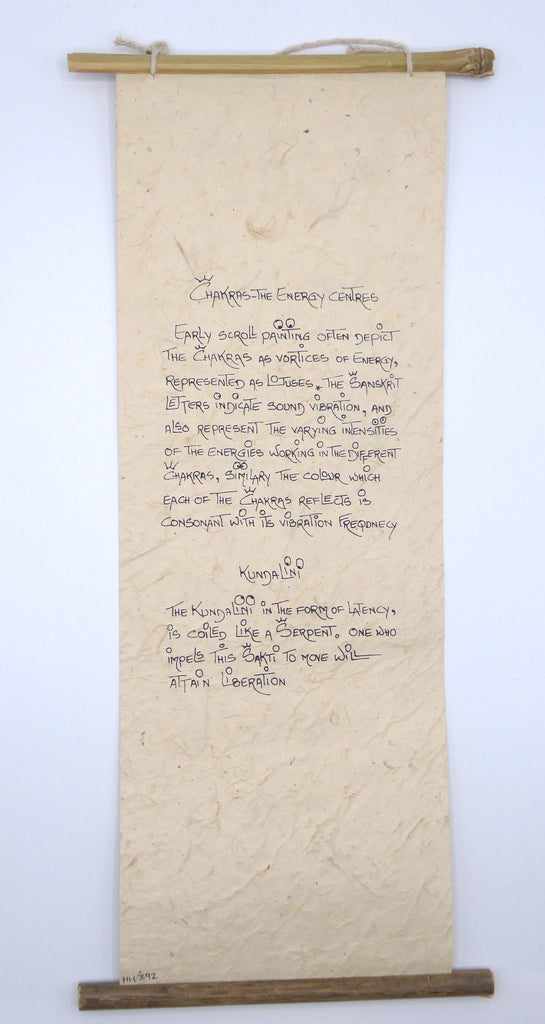 Chakras-The Energy Centres
Early scroll painting often depict
the Chakras as vortices of Energy,
represented as Lotuses. The Sanskrit
letters indicate sound vibration, and
also represent the varying intensities
of the energies working in the Different
Chakras, similary the colour which
each of the Chakras reflects is
consonant with its vibration freqdnecy
Kundalini
The Kundalini in the form of latency,
is coiled like a Serpent. One who
impels this Sakti to move will
attain liberation